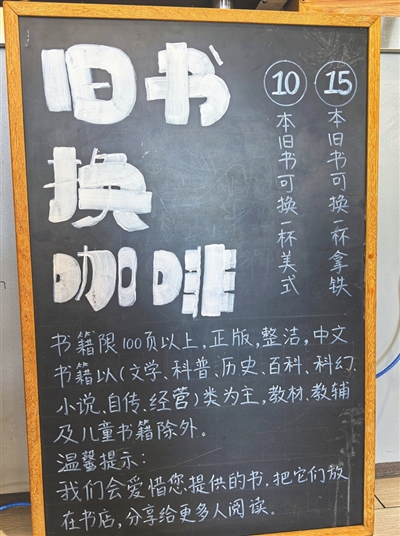 旧书
换
咖啡
⑩本旧书可换一杯美式
⑮本旧书可换一杯拿铁
书籍限100页以上,正版,整洁,中文
书籍以(文学、科普、历史、百科、科幻、
小说、自传、经营)类为主,教材、教辅
及儿童书籍除外。
温馨提示:
我们会爱惜您提供的书,把它们放
在书店,分享给更多人阅读。